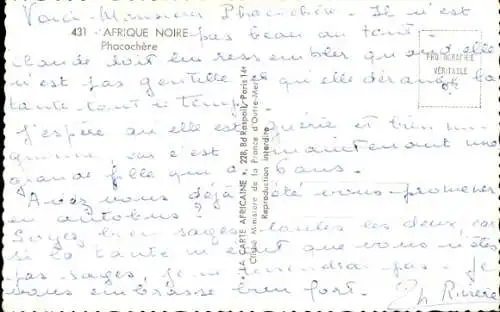 Voici Monsieur Phacochère. Il n'est
431 AFRIQUE NOIRE
Phacochère
pas beau du tout
doit lui ressembler quand elle
n'est pas gentille et qu'elle dérange la
tante tout le temps.
PHOTOGRAPHIE
VÉRITABLE
J'espère qu'elle est guérie et bien
car c'est maintenant une
grande fille qui a 6 ans.
Avez vous déjà été vous promener
en autobus?
Soyez bien sages toutes les deux, car
si la tante m'écrit que vous n'êtes
pas sages, je ne reviendrai pas. Je
vous embrasse bien fort.
"LA CARTE AFRICAINE", 228, Bd Raspail, Paris 14e
Cliché Ministère de la France d'Outre-Mer
Reproduction interdite